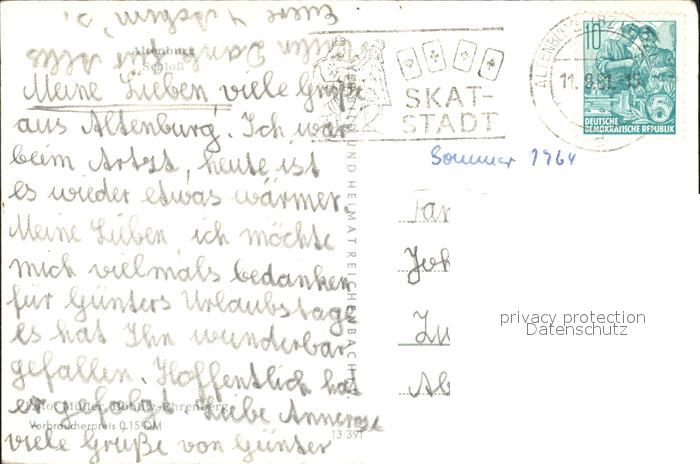 Altenburg
Schloß
Meine Lieben viele Grüße
aus Altenburg. Ich war
beim Artzt, heute ist
es wieder etwas wärmer.
Meine Lieben ich möchte
mich vielmals bedanken
für Günters Urlaubstage
es hat Ihn wunderbar
gefallen. Hoffentlich hat
er gefolgt. Liebe Annerose
viele Grüße von Günter
Vielen Dank für Alles
Eure
Foto: Müller, Böhlitz-Ehrenberg
Verbraucherpreis 0.15 DM
13/391
BILD UND HEIMAT REICHENBACH
SKAT-
STADT
ALTENBURG (BZ
10
5
DEUTSCHE
DEMOKRATISCHE REPUBLIK
Sommer 1964
Fa
Joh
privacy protection
Datenschutz